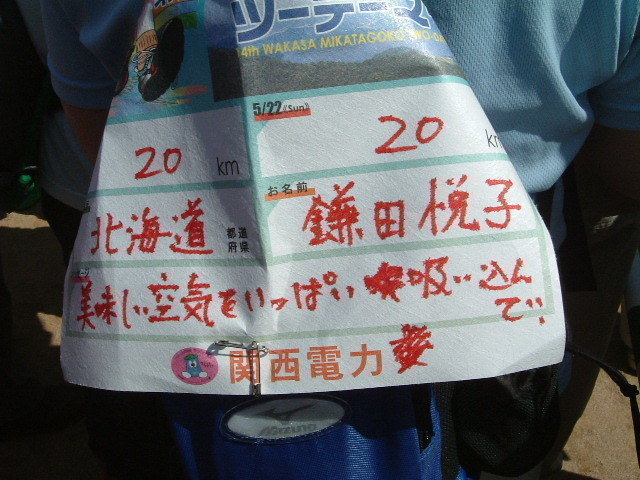 ツーデーマ
4th WAKASA MIKATAGOKO TWO-DA
5/22(Sun)
20 km
20 km
お名前
北海道 都道府県
鎌田悦子
美味しい空気をいっぱい吸い込んで!
関西電力
Mizuno